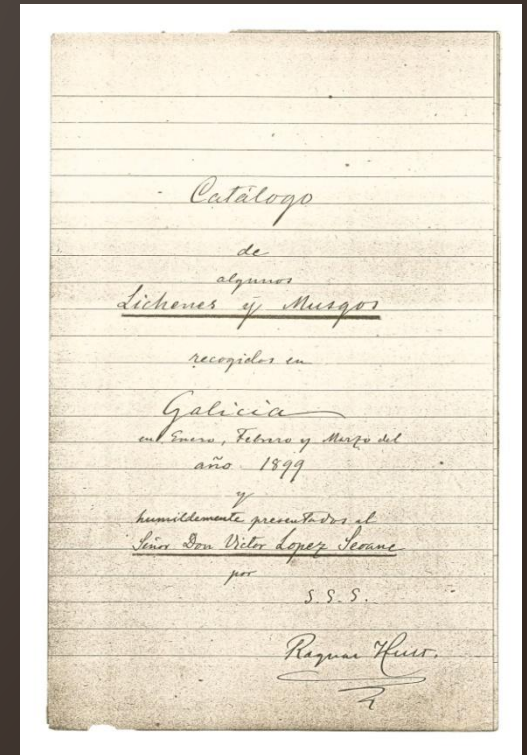 Catálogo
de
algunos
Lichenes ÿ Musgos
recogidos en
Galicia
en Enero, Febrero y Marzo del
año 1899
y
humildemente presentados al
Señor Don Victor Lopez Seoane
por
S. S. S.
Ragnar Hult.